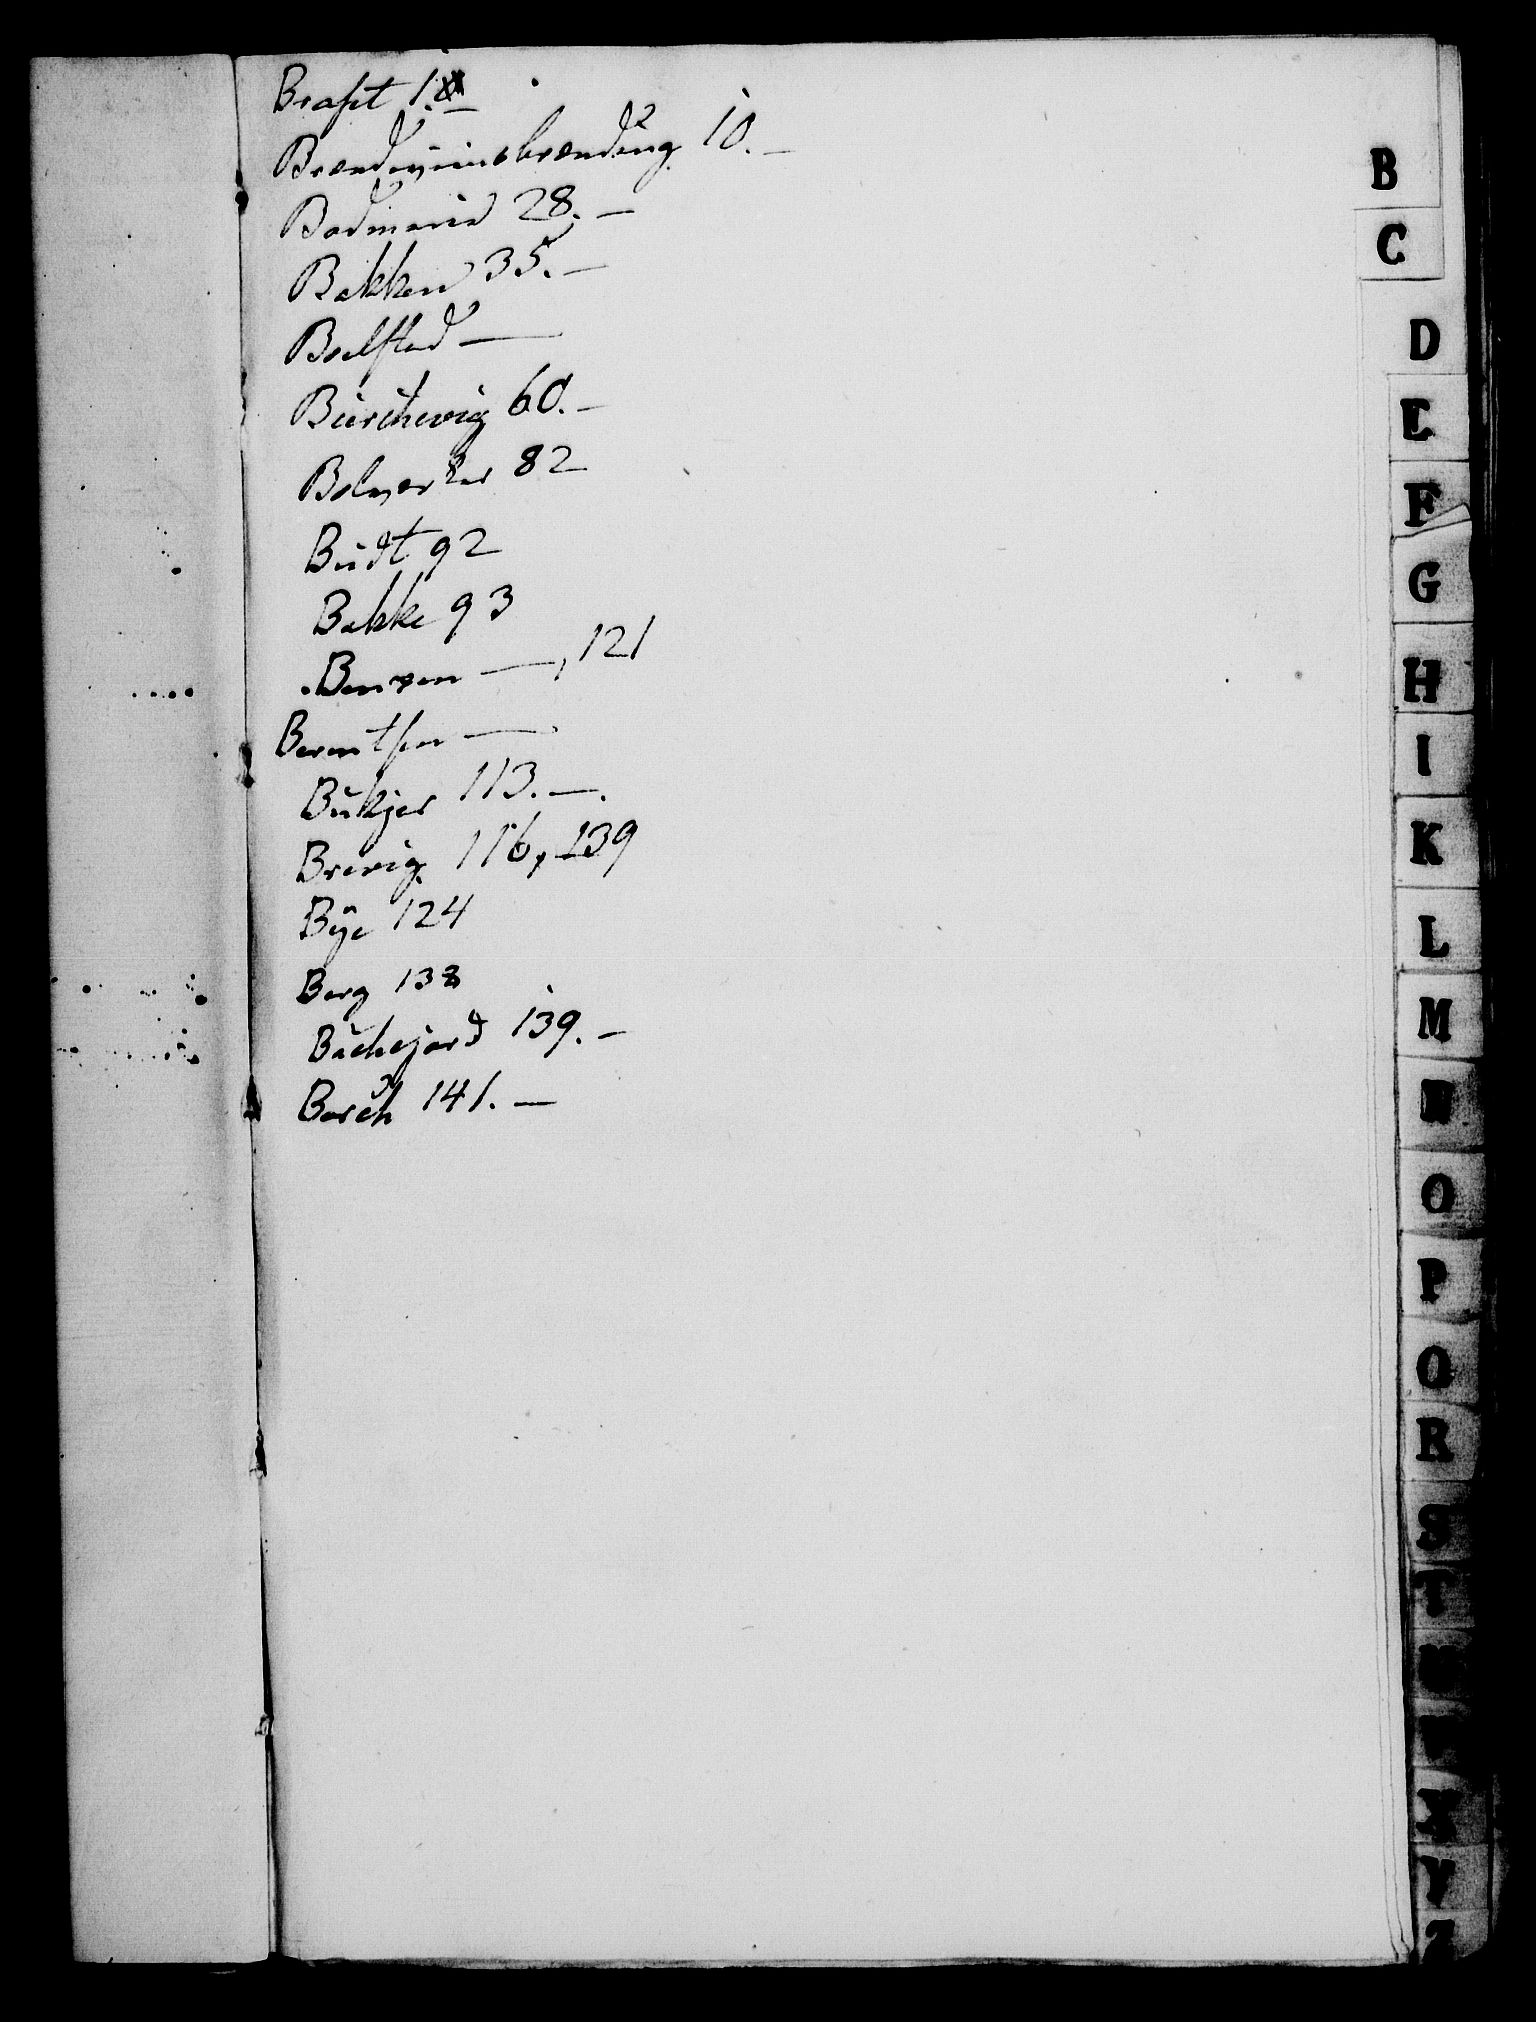 Brast 1.
Brændeviinsbrænding 10. —
Bodmerie 28. —
Bakken 35. —
Boelsted —
Biørchevig 60. —
Bolværker 82
Budt 92
Bakke 93
Bensen —, 121
Berentsen —
Bukjer 113. —.
Brevig. 116, 139
Bye 124
Berg 138
Buchejord 139. —
Borch 141. —
B
C
D
E
F
G
H
I
K
L
M
N
O
P
Q
R
S
T
Y
Z